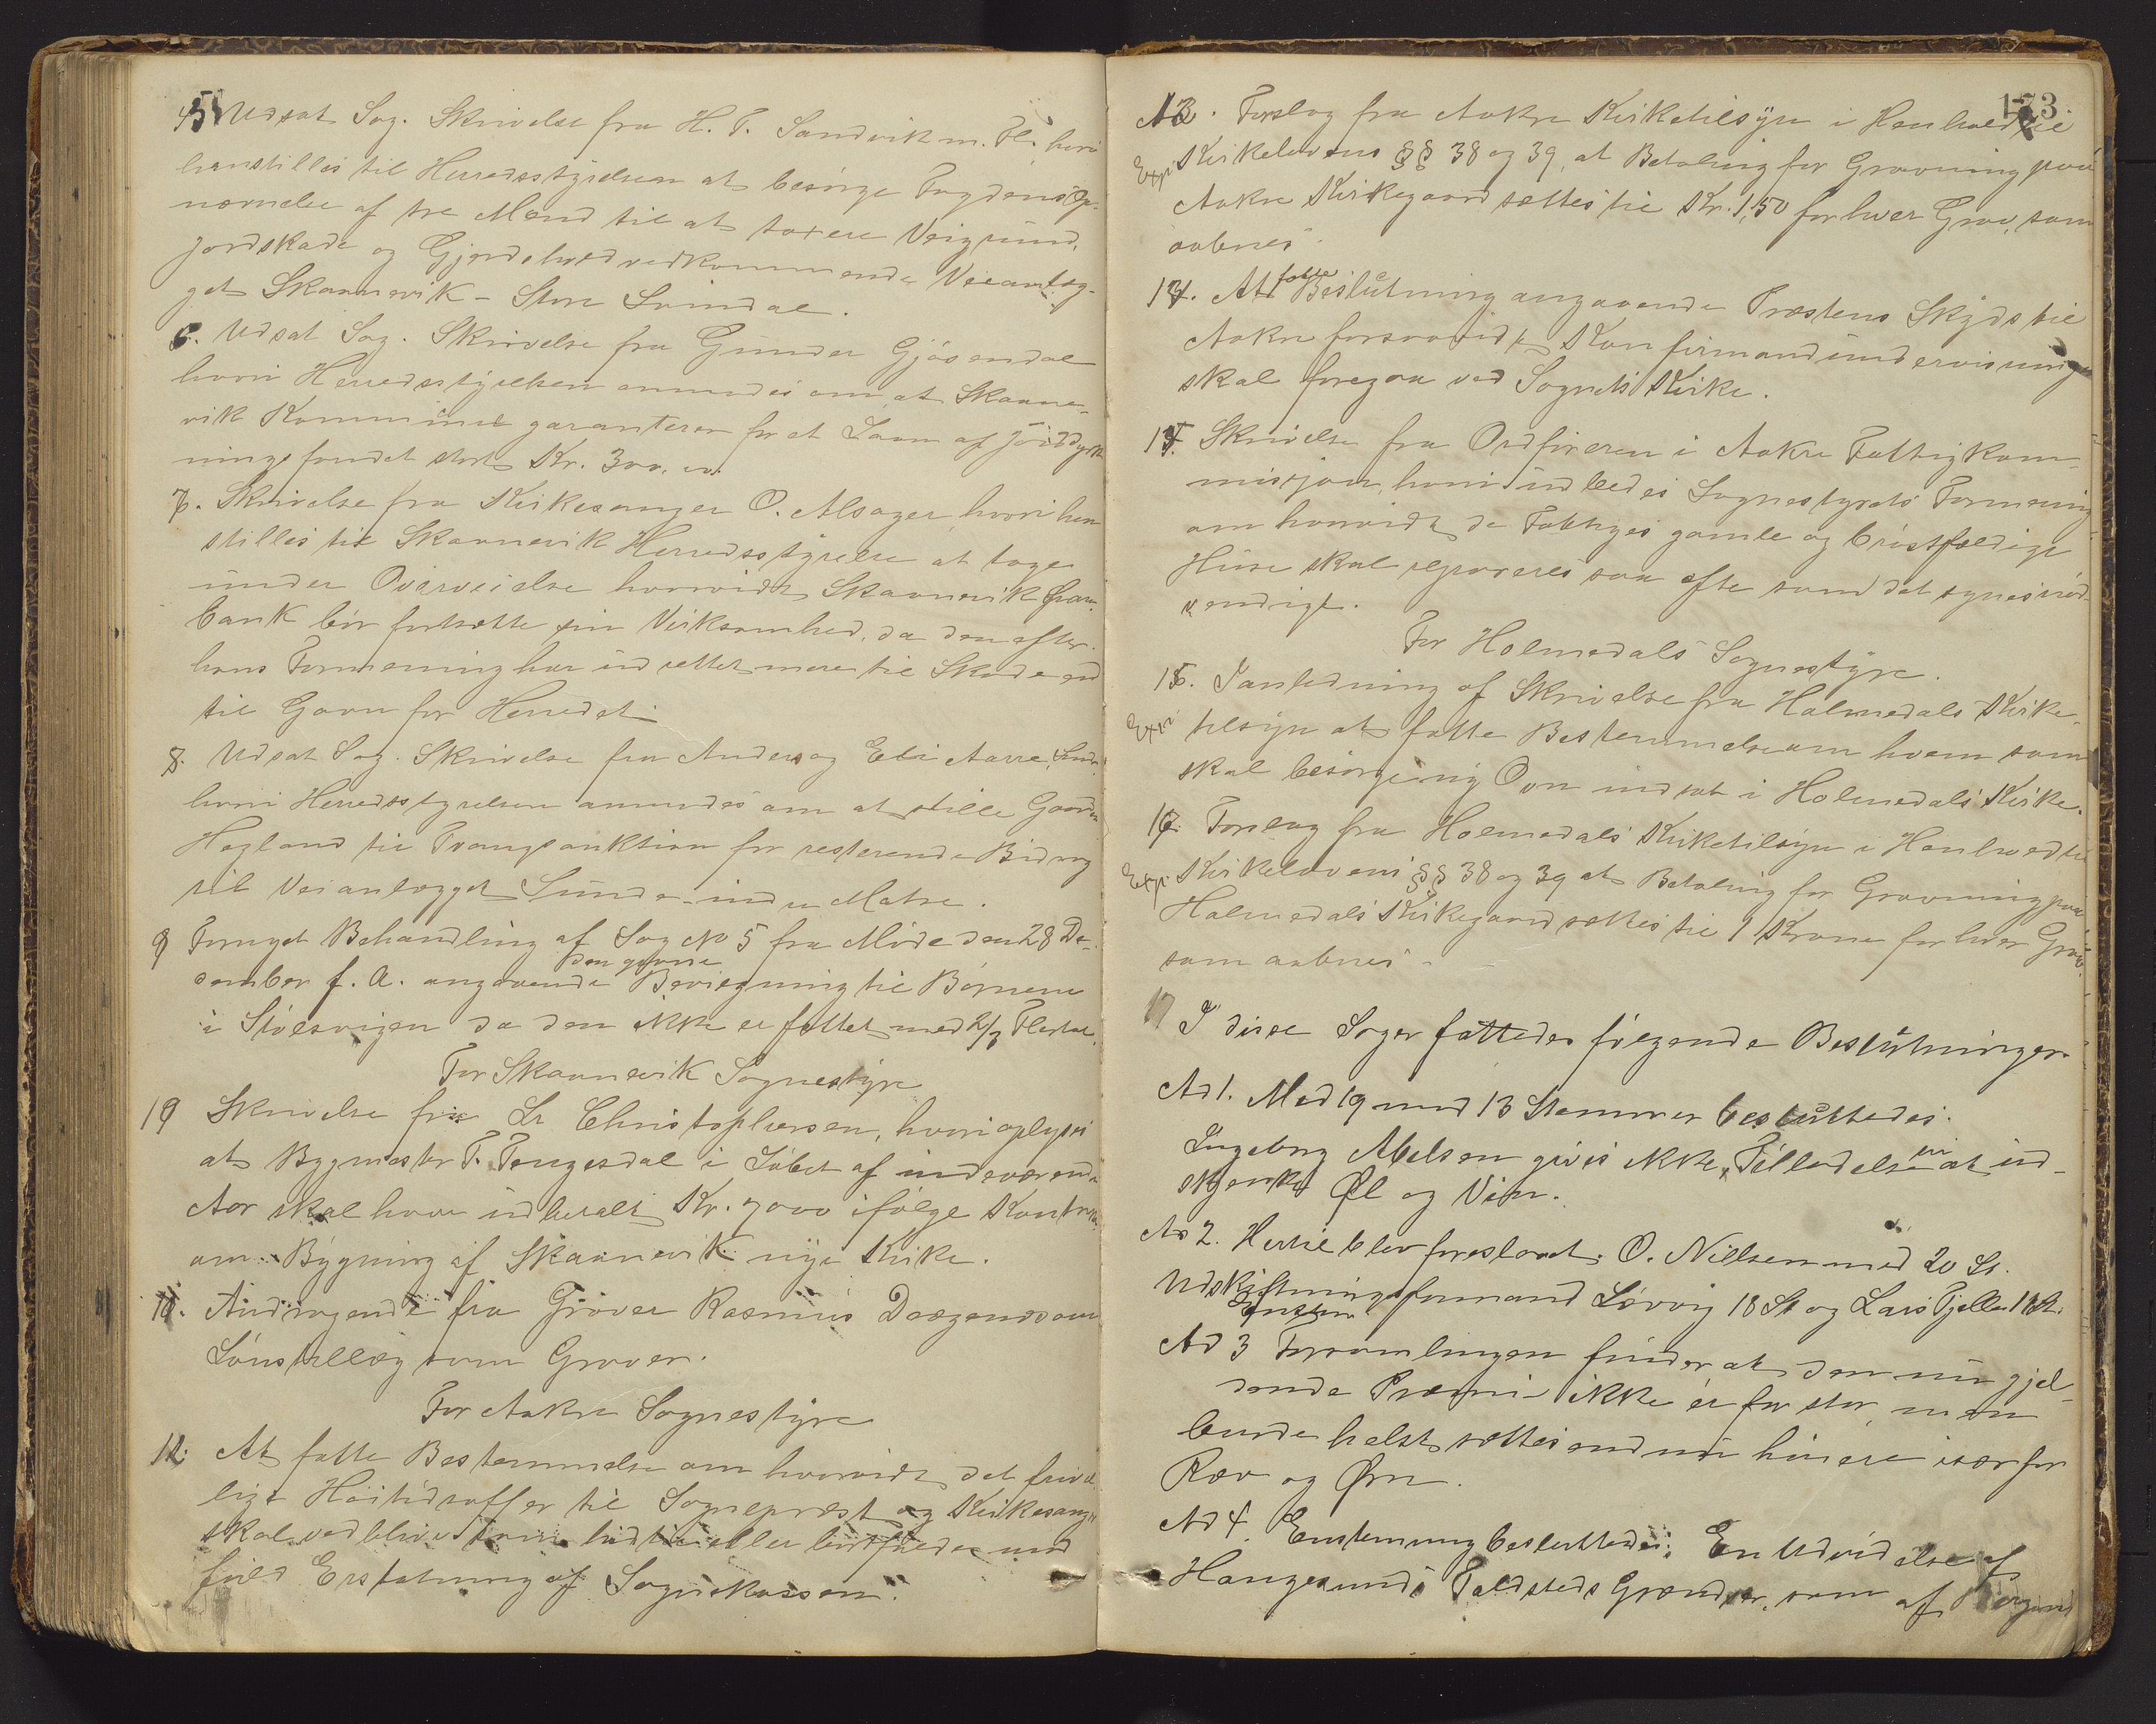 5. Udsat Sag. Skrivelse fra H. T. Sandvik m. Fl. hvori
henstilles til Herredsstyrelsen at besørge Fogdens Op-
nævnelse af tre Mænd til at taxere Veigrund,
Jordskade og Gjerdehold vedkommende Veianlæg-
get Skaanevik - Store Svindal.
6. Udsat Sag. Skrivelse fra Gunder Gjøsendal
hvori Herredsstyrelsen anmodes om, at Skaane-
vik Kommune garanterer for et Laan af Jorddyrk
ningsfondet stort Kr. 300.00.
7. Skrivelse fra Kirkesanger O. Alsager, hvori hen
stilles til Skaanevik Herredsstyrelse at tage
under Overveielse hvorvidt Skaanevik Spare
bank bør fortsætte sin Virksomhed, da den efter
hans Formening har udrettet mere til Skade end
til Gavn for Herredet.
8. Udsat Sag. Skrivelse fra Anders og Elsi Aarre,
hvori Herredsstyrelsen anmodes om at stille Gaarden
Hogland til Tvangsauktion for resterende Bidrag
til Veianlægget Sunde-indre Matre.
9 Fornyet Behandling af Sag No 5 fra Møde den 28 De-
den givne
cember f. A. angaaende Bevilgning til Børnene
i Stølsvigen da den ikke er fattet med 2/3 Flertal.
For Skaanevik Sognestyre
10 Skrivelse fra Lr Christophersen, hvori oplyses
at Bygmester T. Tengesdal i Løbet af indeværende
Aar skal have udbetalt Kr. 7000 ifølge Kontrakt
om Bygning af Skaanevik nye Kirke.
11. Andragende fra Graver Rasmus om
Lønstillæg som Graver.
For Aakre Sognestyre
12. At fatte Bestemmelse om hvorvidt det frivil
lige Høitidsoffer til Sogneprest og Kirkesanger
skal vedblive som hidtil eller bortfalde mod
fuld Erstatning af Sognekassen.
173.
13. Forslag fra Aakre Kirketilsyn i Henhold til
Exp. Kirkelovens §§ 38 og 39, at Betaling for Gravning paa
Aakre Kirkegaard sættes til Kr. 1,50 for hver Grav, som
aabnes.
14. At fatte Beslutning angaaende Præstens Skyds til
Aakre forsaavidt Konfirmandundervisning
skal foregaa ved Sognets Kirke.
15. Skrivelse fra Ordføreren i Aakre Fattigkom-
mission, hvori udbedes Sognestyrets Formening
om hvorvidt de Fattiges gamle og brøstfældige
Huse skal repareres saa ofte som det synes nød-
vendigt.
For Holmedals Sognestyre.
16. I anledning af Skrivelse fra Holmedals Kirke-
Exp. tilsyn at fatte Bestemmelse om hvem som
skal besørge ny Ovn indsat i Holmedals Kirke.
17. Forslag fra Holmedals Kirketilsyn i Henhold til
Exp. Kirkelovens §§ 38 og 39 at Betaling for Gravning paa
Holmedals Kirkegaard sættes til 1 Krone for hver Grav
som aabnes.
17 I disse Sager fattedes følgende Beslutninger.
Ad 1. Med 19 mod 13 Stemmer besluttedes:
Ingeborg Abelsen gives ikke Tilladelse til at ud-
skjenke Øl og Vin.
Ad 2. Hertil blev foreslaaet O. Nilssen med 20 St.
Udskiftningsformand Lørvig 18 St og Lars Tjelle 11 St.
Enstem
Ad 3 Forsamlingen finder at den nu gjel-
dende Præmie ikke er for stor, men
burde helst sættes endnu høiere især for
Ræv og Ørn.
Ad 4. Enstemmig besluttedes: En Udvidelse af
Haugesunds Toldsteds Grændser, som af